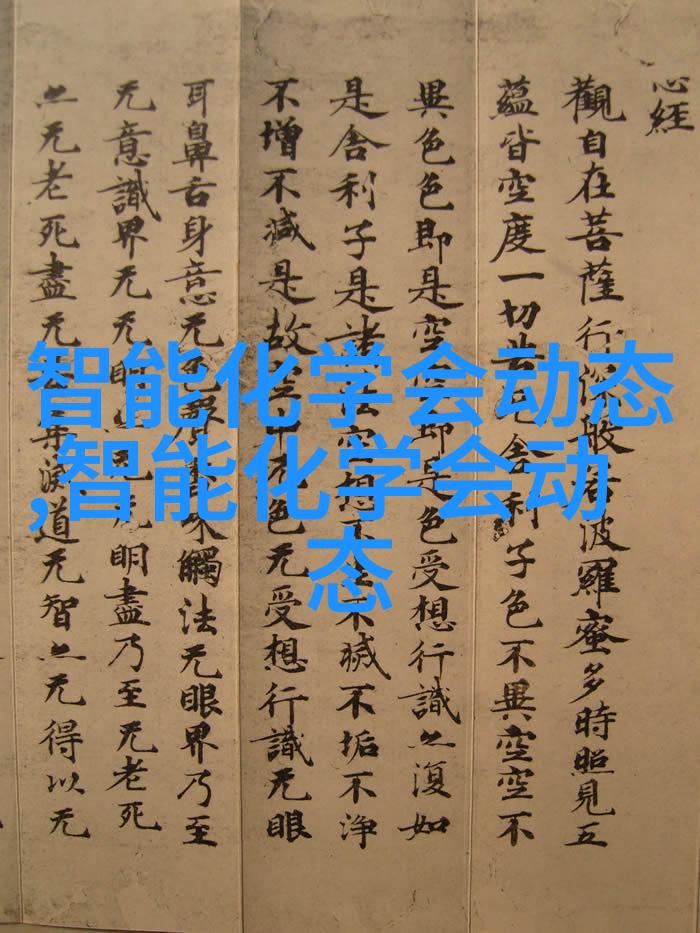 心經
觀自在菩薩行深般若波羅蜜多時照見五
蘊皆空度一切苦舍利子色不異空空不
異色色即是空即是色受想行識亦復如
是舍利子是諸法空想不不滅不垢不淨
不增不減是故空中无色无受想行識无眼
耳鼻舌身意无色聲香味觸法无眼界乃至
无意識界无无明亦无无明盡乃至无老死
亦无老死盡无集滅道无智亦无得以无
智能化学会动态
,智能化学会动
态